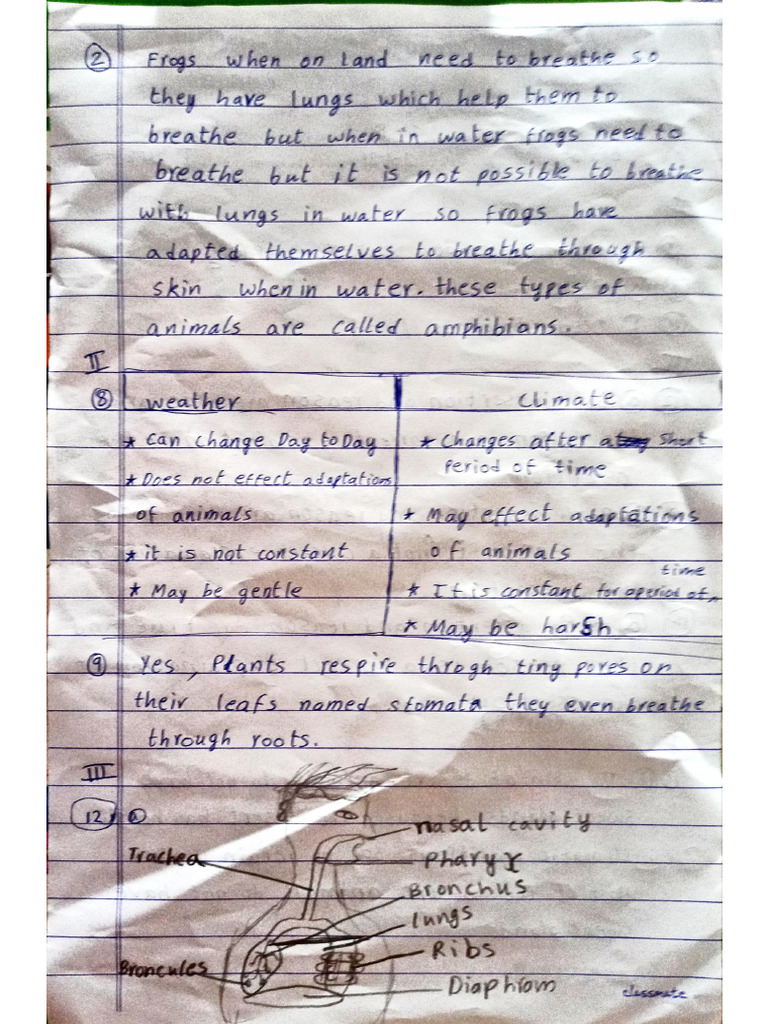 ② Frogs when on land need to breathe so
they have lungs which help them to
breathe but when in water frogs need to
breathe but it is not possible to breathe
with lungs in water so frogs have
adapted themselves to breathe through
skin when in water. these types of
animals are called amphibians.
II
⑧ weather
* can change Day to Day
* Does not effect adaptations
of animals
* it is not constant
* May be gentle
Climate
* Changes after a short
Period of time
* May effect adaptations
of animals
* It is constant for a period of time
* May be harsh
⑨ Yes, Plants respire throgh tiny pores on
their leafs named stomata they even breathe
through roots.
III
12 ⓐ
nasal cavity
Trachea
Pharyx
Bronchus
lungs
Ribs
Broncules
Diaphrom
classmate